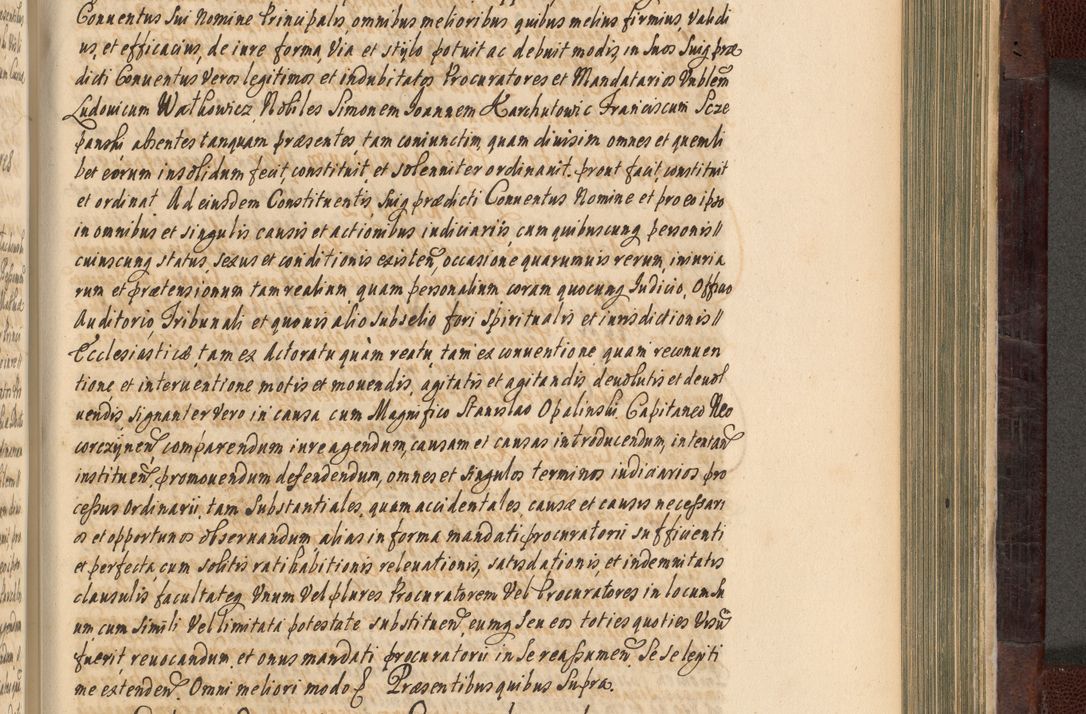 Conuentus Sui Nomine Principalis, omnibus melioribus quibus melius firmius, Validi
us, et efficacius, de iure forma, Via et stylo potuit ac debuit modis, in Suos Suiq præ
dicti Conuentus Veros legitimos et indubitatos Procuratores et Mandatarios Vnblem
Ludouicum Wathowicz Nobiles Simonem Joannem Harchutowic Franciscum Scze
panski absentes tanquam præsentes, tam coniunctim, quam diuisim omnes et quemli
bet eorum insolidum fecit constituit, et solenniter ordinauit. prout facit constituit
et ordinat Ad eiusdem Constituentis, Suiq prædicti Conuentus Nomine et pro eo ipso
in omnibus et singulis causis et actionibus iudiciariis, cum quibuscunq personis//
cuiuscunq status, sexus et conditionis existen, occasione quarumuis rerum, iniuria
rum et prætensionum tam realium, quam personalium coram quocunq Judicio, Officio
Auditorio, Tribunali et quouis alio subselio fori Spiritualis et iurisdictionis//
Ecclesiasticæ, tam ex Actoratu quàm reatu, tam ex conuentione quam reconuen
tione et interuentione motis et mouendis, agitatis et agitandis deuolutis et deuol
uendis, signanter Vero in causa cum Magnifico Stanislao Opalinski Capitaneo Neo
corczynen comparendum iure agendum, causam et causas introducendum, intentan
instituen, promouendum defendendum, omnes et singulos terminos iudiciarios pro
cessus Ordinarii, tam Substantiales, quam accidentales, causæ et causis necessari
os et opportunos obseruandum alias in forma mandati procuratorii sufficienti
et perfecta, cum solitis ratihabitionis releuationis, satisdationis, et indemnitatis
clausulis, facultateq Vnum Vel plures Procuratorem Vel Procuratores in locum su
um cum Simili Vel limitata potestate substituen, eumq Seu eos toties quoties Visu
fuerit, reuocandum, et onus mandati procuratorii in Se reassumen Se se legiti
me extenden. Omni meliori modo Præsentibus quibus Supra.